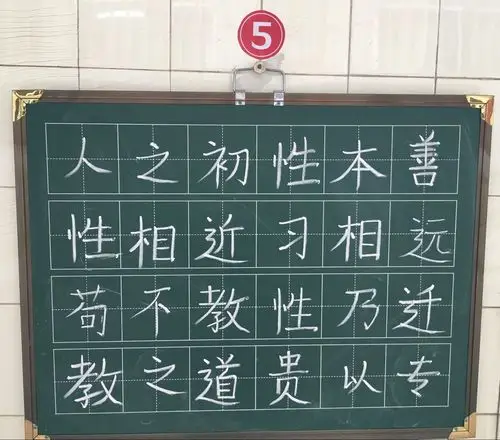 5
人之初性本善
性相近习相远
苟不教性乃迁
教之道贵以专